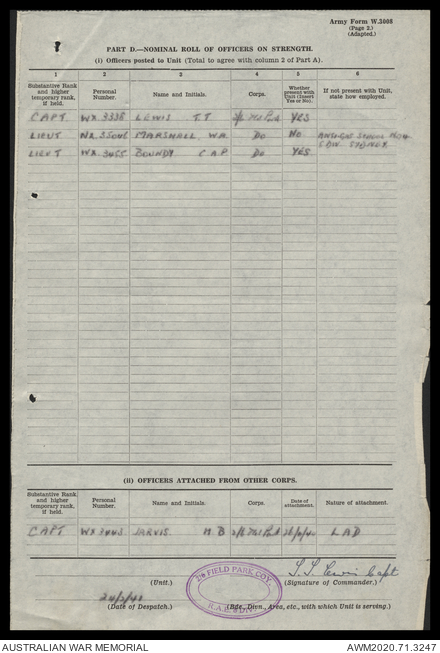 Army Form W.3008
(Page 2.)
(Adapted.)
PART D.—NOMINAL ROLL OF OFFICERS ON STRENGTH.
(i) Officers posted to Unit (Total to agree with column 2 of Part A).
1 2 3 4 5 6
Substantive Rank and higher temporary rank, if held. Personal Number. Name and Initials. Corps. Whether present with Unit (Insert Yes or No). If not present with Unit, state how employed.
CAPT WX 3338 LEWIS T.T YES
LIEUT MARSHALL W.R. Do No ANTI-GAS SCHOOL
SYDNEY
LIEUT WX 3455 BOUNDY C A P Do YES
(ii) OFFICERS ATTACHED FROM OTHER CORPS.
Substantive Rank and higher temporary rank, if held. Personal Number. Name and Initials. Corps. Date of attachment. Nature of attachment.
CAPT JARVIS B LAD
(Unit.)
2/6 FIELD PARK COY.
R.A.E.
(Signature of Commander.)
(Date of Despatch.)
(Bde., Divn., Area, etc., with which Unit is serving.)
AUSTRALIAN WAR MEMORIAL
AWM2020.71.3247